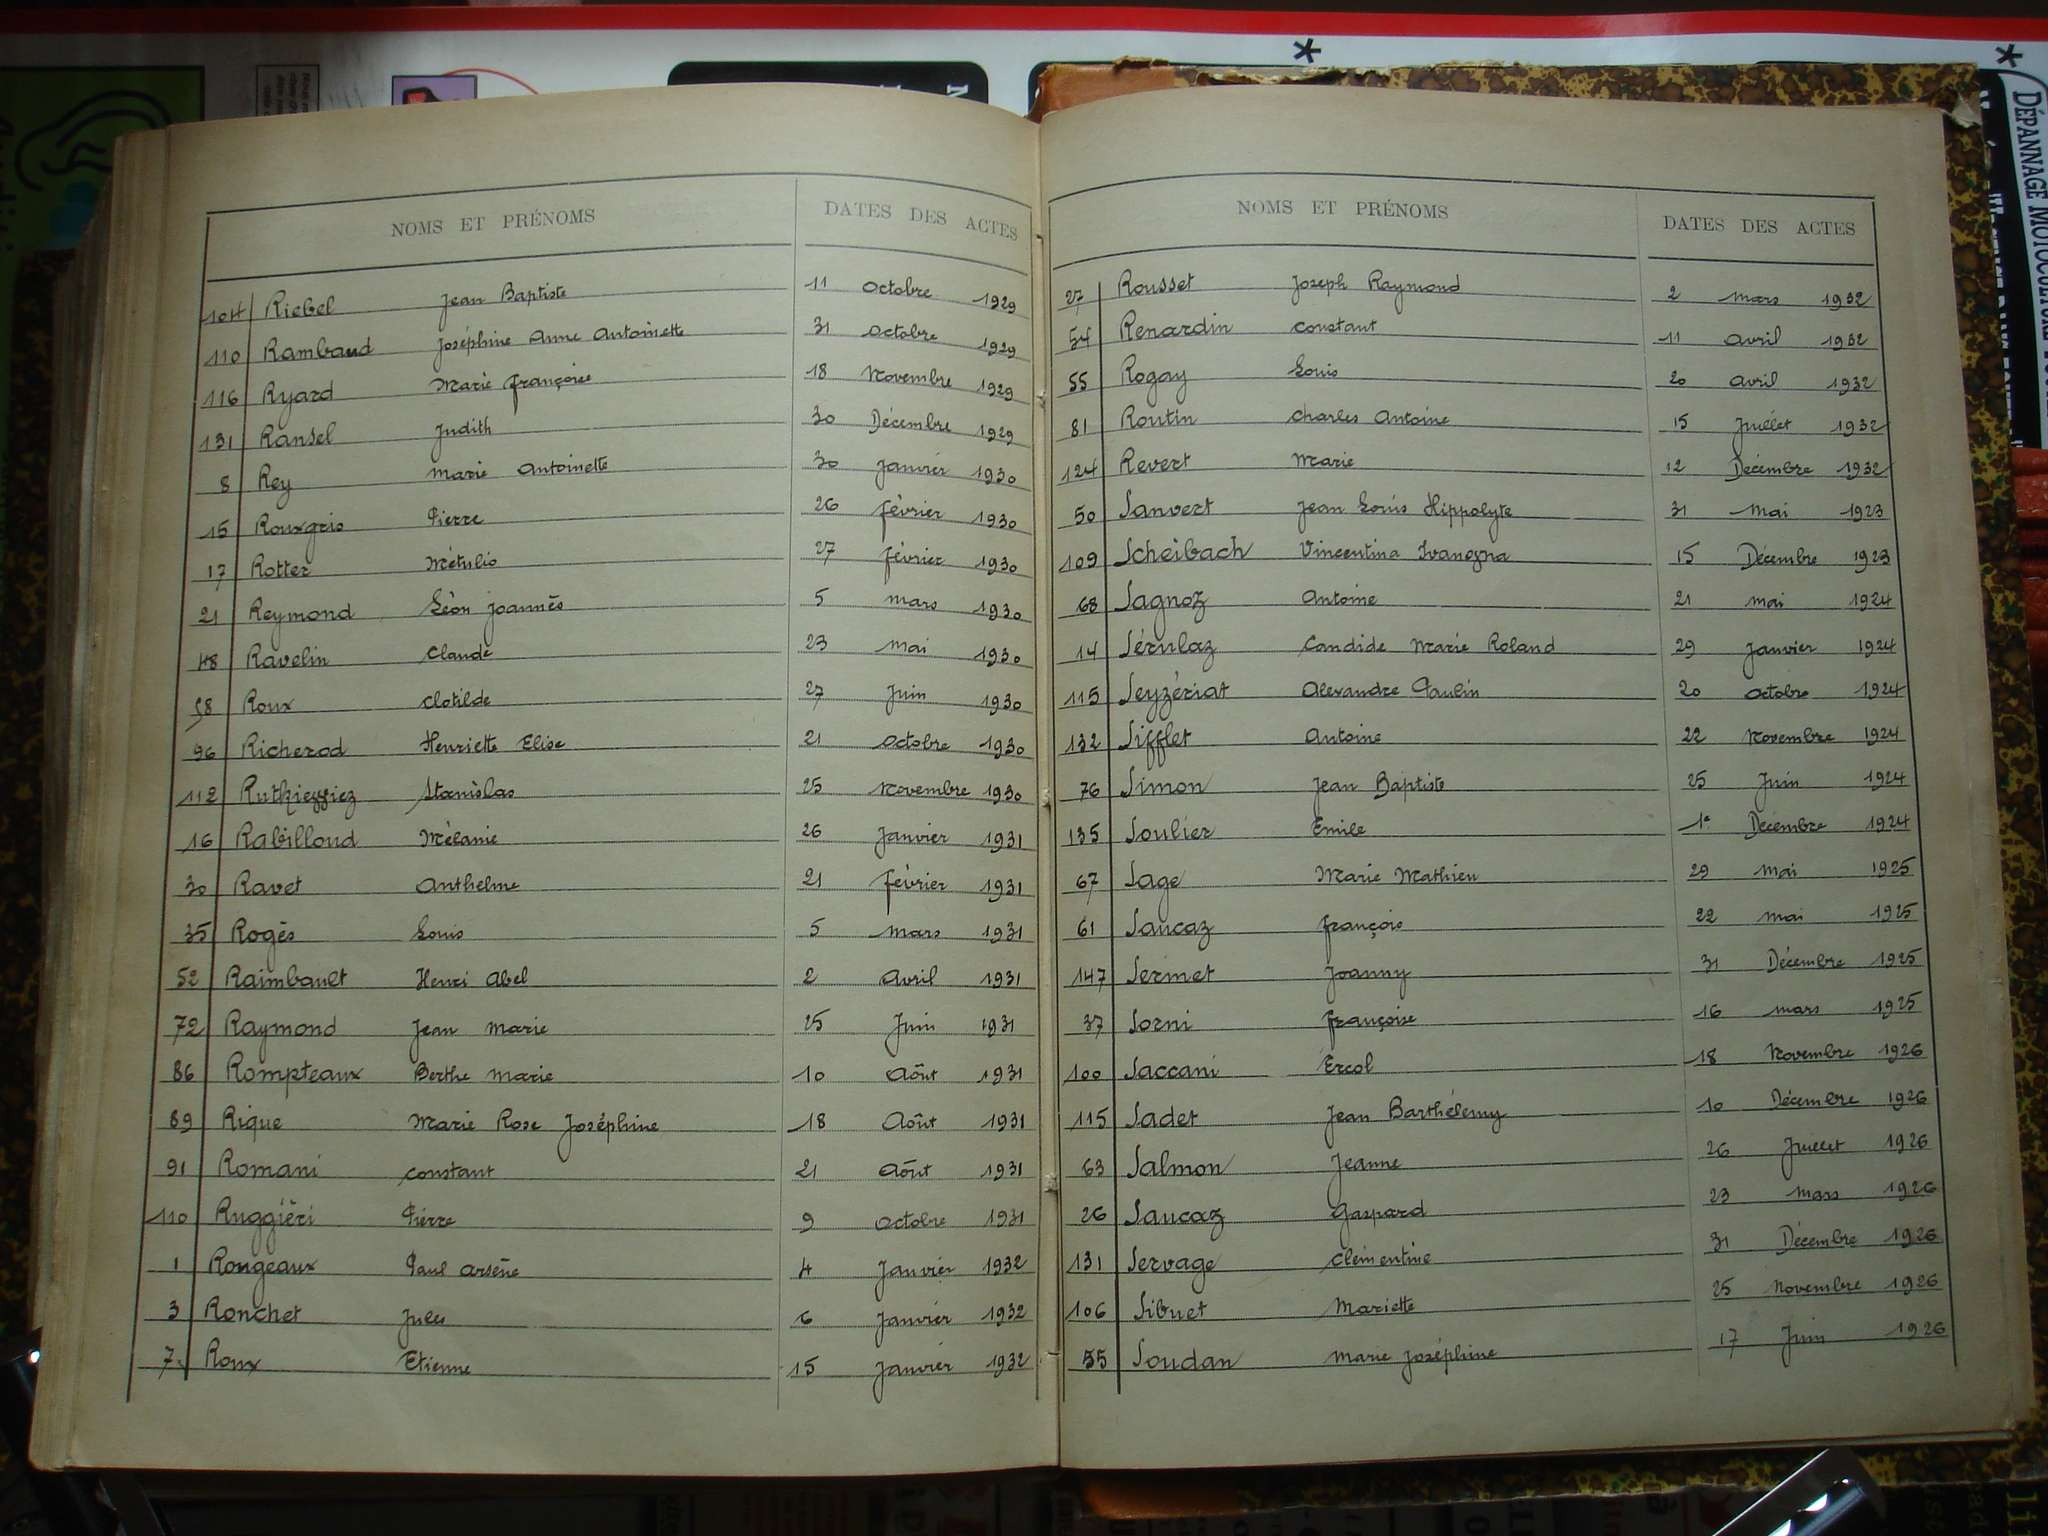 DÉPANNAGE MOTOCULTURE
NOMS ET PRÉNOMS DATES DES ACTES
104 Riebel Jean Baptiste 11 Octobre 1929
110 Rambaud Joséphine Anne Antoinette 31 Octobre 1929
116 Ryard Marie Françoise 18 Novembre 1929
131 Ransel Judith 30 Décembre 1929
8 Rey Marie Antoinette 30 Janvier 1930
15 Rouxgris Pierre 26 Février 1930
17 Rotter Métulio 27 Février 1930
21 Reymond Léon Joannès 5 Mars 1930
48 Ravelin Claude 23 Mai 1930
58 Roux Clotilde 27 Juin 1930
96 Richerod Henriette Elise 21 Octobre 1930
112 Stanislas 25 Novembre 1930
16 Rabilloud Mélanie 26 Janvier 1931
30 Ravet Anthelme 21 Février 1931
35 Rogès Louis 5 Mars 1931
52 Raimbault Henri Abel 2 Avril 1931
72 Raymond Jean Marie 25 Juin 1931
86 Rompteaux Berthe Marie 10 Août 1931
89 Rique Marie Rose Joséphine 18 Août 1931
91 Romani Constant 21 Août 1931
110 Ruggiéri Pierre 9 Octobre 1931
1 Rongeaux Paul Arsène 4 Janvier 1932
3 Ronchet Jules 6 Janvier 1932
7 Roux Etienne 15 Janvier 1932
NOMS ET PRÉNOMS DATES DES ACTES
27 Rousset Joseph Raymond 2 Mars 1932
54 Renardin Constant 11 Avril 1932
55 Rogay Louis 20 Avril 1932
81 Routin Charles Antoine 15 Juillet 1932
124 Revert Marie 12 Décembre 1932
50 Sanvert Jean Louis Hippolyte 31 Mai 1923
109 Scheibach Vincentina Ivanogna 15 Décembre 1923
68 Sagnoz Antoine 21 Mai 1924
14 Sérulaz Candide Marie Roland 29 Janvier 1924
115 Seyzériat Alexandre Paulin 20 Octobre 1924
132 Sifflet Antoine 22 Novembre 1924
76 Simon Jean Baptiste 25 Juin 1924
135 Soulier Emile 1e Décembre 1924
67 Sage Marie Mathieu 29 Mai 1925
61 Saucaz François 22 Mai 1925
147 Sermet Joanny 31 Décembre 1925
37 Sorni Françoise 16 Mars 1925
100 Saccani Ercol 18 Novembre 1926
115 Sadet Jean Barthélemy 10 Décembre 1926
63 Salmon Jeanne 26 Juillet 1926
26 Saucaz Gaspard 23 Mars 1926
131 Servage Clémentine 31 Décembre 1926
106 Sibuet Mariette 25 Novembre 1926
55 Soudan Marie Joséphine 17 Juin 1926